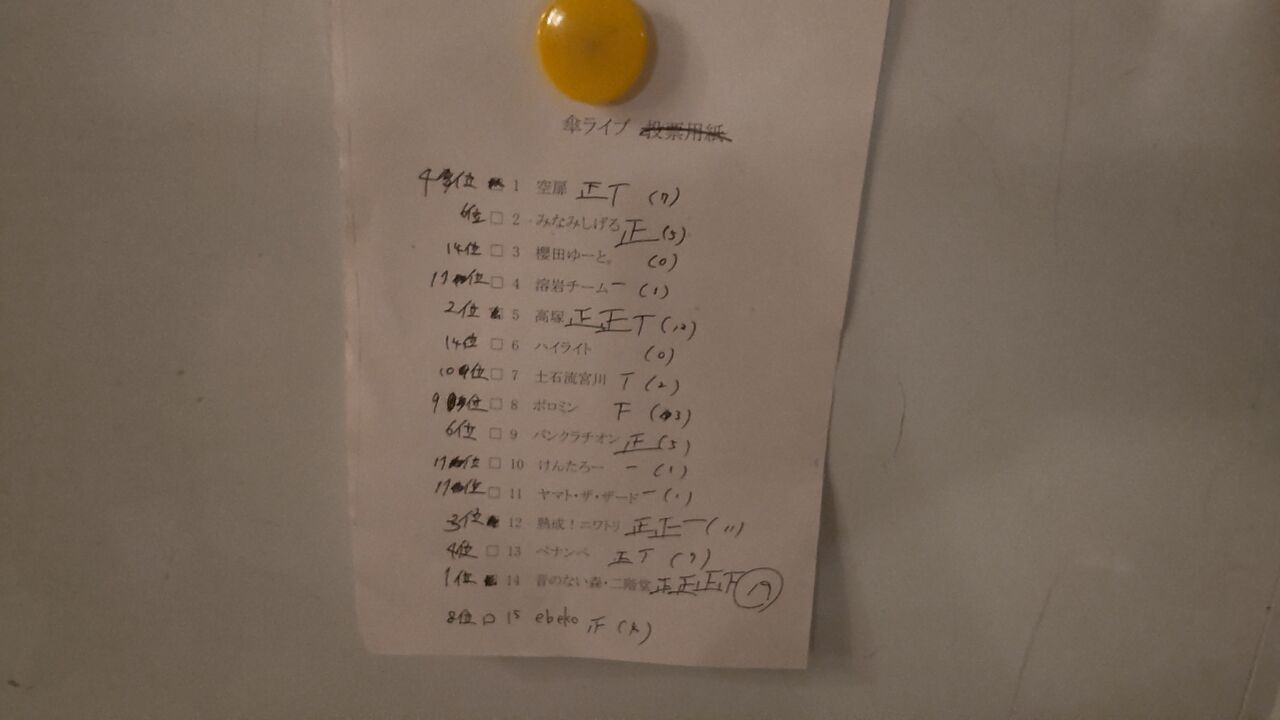 傘ライブ 投票用紙
4位 1 空扉 正丅 (7)
6位 □ 2 みなみしげる 正 (5)
14位 □ 3 櫻田ゆーと。 (0)
11位 □ 4 溶岩チーム 一 (1)
2位 5 高塚 正正丅 (12)
14位 □ 6 ハイライト (0)
10位 □ 7 土石流宮川 丅 (2)
9位 □ 8 ポロミン 下 (3)
6位 □ 9 パンクラチオン 正 (5)
11位 □ 10 けんたろー 一 (1)
11位 □ 11 ヤマト・ザ・ザード 一 (1)
3位 12 熟成!ニワトリ 正正一 (11)
4位 □ 13 ペナンペ 正丅 (7)
1位 14 音のない森・二階堂 正正正 19
8位 □ 15 ebeko